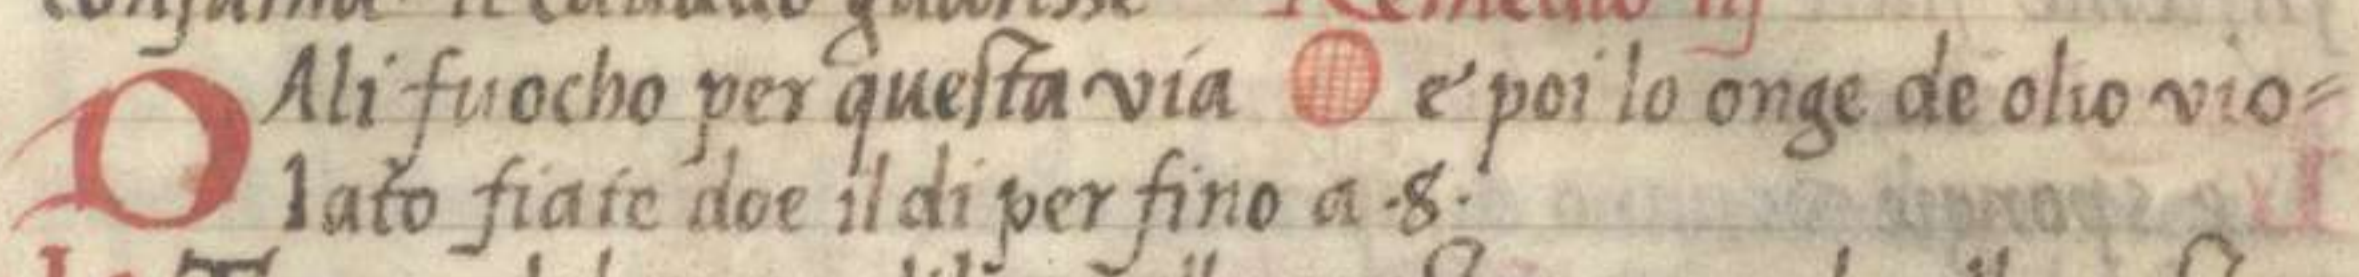 Remedio iij
DAli fuocho per questa via e poi lo onge de olio vio=
lato fiate doe il di per fino a .8.